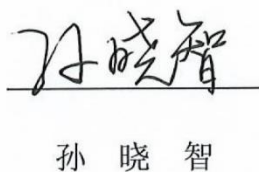 孙晓智
孙 晓 智